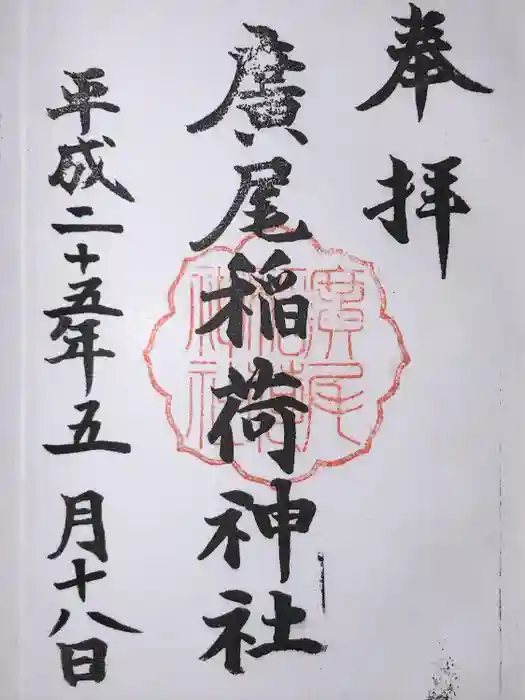 奉拝
廣尾稲荷神社
平成二十五年五月十八日
廣尾
稲荷
神社